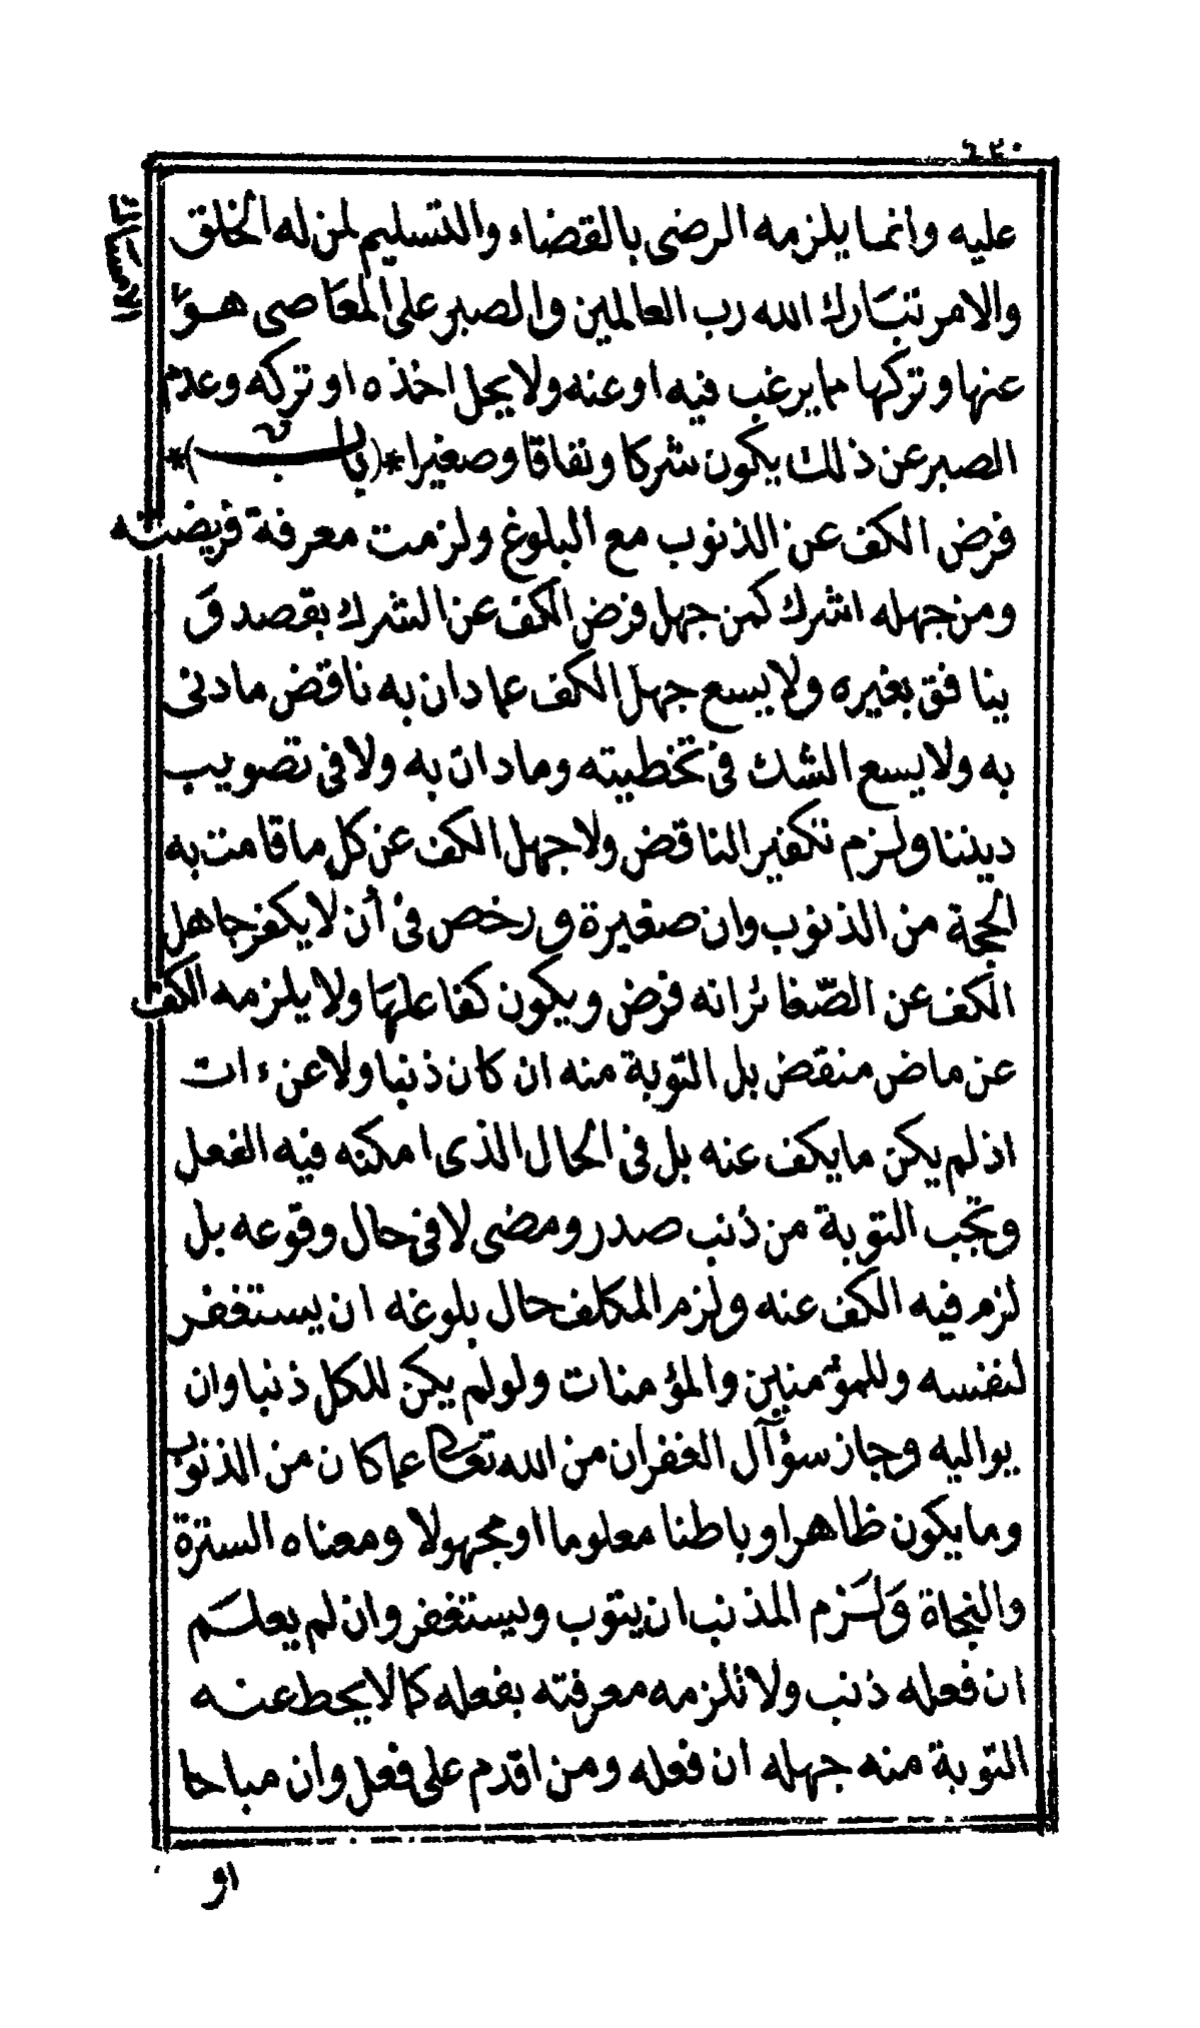 ٢٣٠
الامساك
عليه وانما يلزمه الرضى بالقضاء والتسليم لمن له الخلق
والامر تبَارك الله رب العالمين والصبر على المعَاصى هـو
عنها وتركها مما يرغب فيه او عنه ولا يحل اخذه او تركه وعدم
الصبر عن ذلك يكون شركا ونفاقا وصغيرا *( باب )*
فرض الكف عن الذنوب مع البلوغ ولزمت معرفة فريضته
ومن جهله اشرك كمن جهل فرض الكف عن الشرك بقصد وَ
ينافق بغيره ولا يسع جهل الكف عما دان به ناقض ما دنى
به ولا يسع الشك فى تخطيته وما دان به ولا فى تصويب
ديننا ولزم تكفير الناقض ولا جهل الكف عن كل ما قامت به
الحجة من الذنوب وان صغيرة ورخص فى أن لا يكفر جاهل
الكف عن الصّغائر انه فرض ويكون كفا علهَا ولا يلزمه الكف
عن ماض منقض بل التوبة منه ان كان ذنبا ولا عن ءات
اذ لم يكن ما يكف عنه بل فى الحال الذى امكنه فيه الفعل
وتجب التوبة من ذنب صدر ومضى لا فى حال وقوعه بل
لزم فيه الكف عنه ولزم المكلف حال بلوغه ان يستغفر
لنفسه وللمؤمنين والمؤمنات ولو لم يكن للكل ذنبا وان
يواليه وجاز سؤآل الغفران من الله تعَالى عما كان من الذنوب
وما يكون ظاهرا وباطنا معلوما او مجهولا ومعناه السترة
والنجاة وَلَزم المذنب ان يتوب ويستغفر وان لم يعلَم
ان فعله ذنب ولا تلزمه معرفته بفعله كما لا يحط عنه
التوبة منه جهله ان فعله ومن اقدم على فعل وان مباحا
او